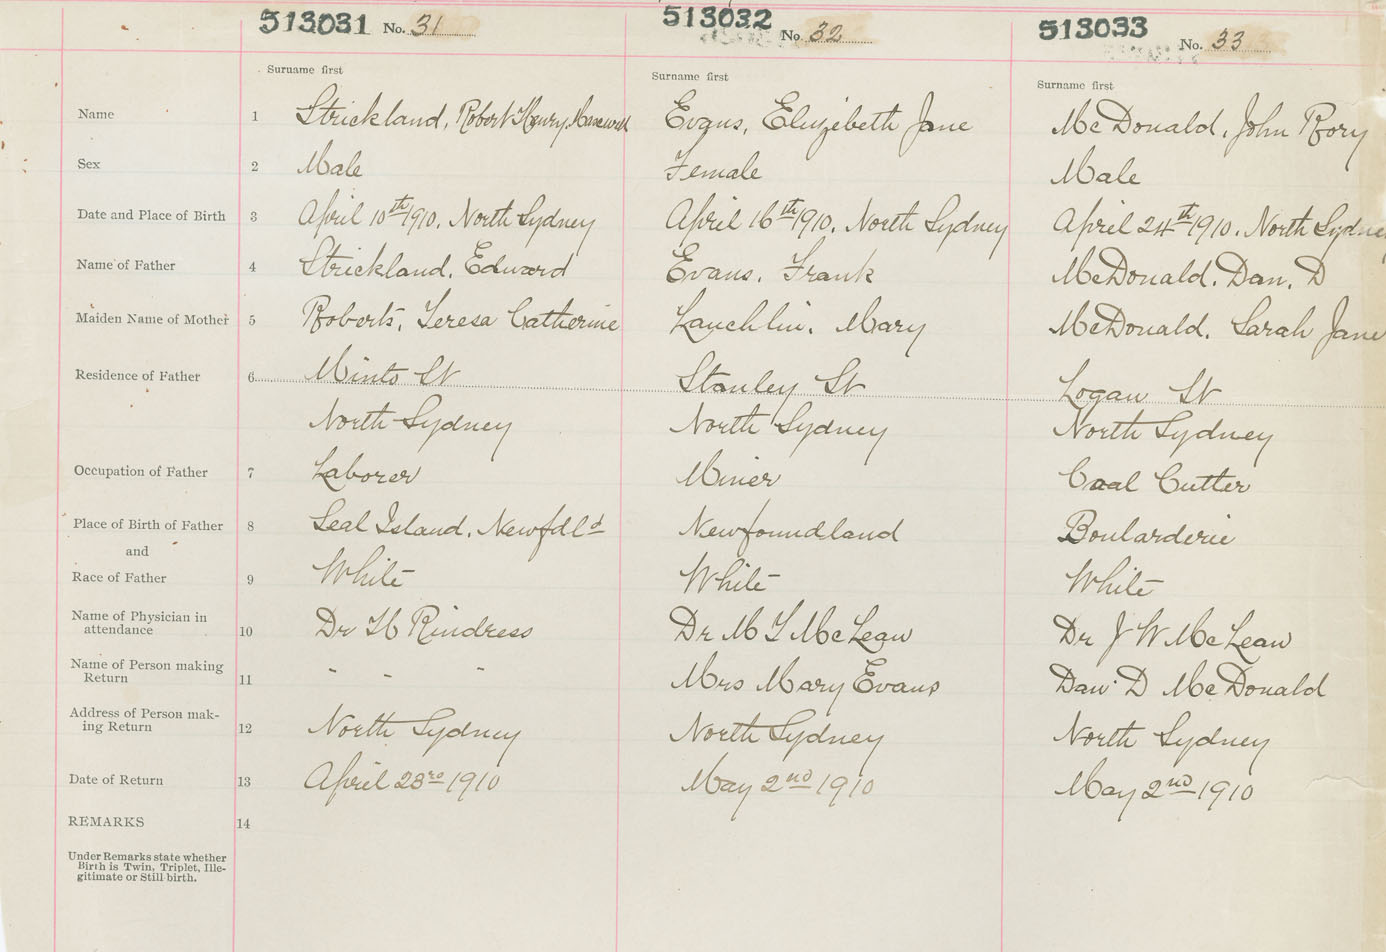 513031 No. 31 513032 No. 32 513033 No. 33
Surname first Surname first Surname first
Name 1 Strickland, Robert Henry Evans, Elizebeth Jane McDonald, John Rory
Sex 2 Male Female Male
Date and Place of Birth 3 April 10th 1910. North Sydney April 16th 1910. North Sydney April 24th 1910. North Sydney
Name of Father 4 Strickland, Edward Evans, Frank McDonald, Dan. D
Maiden Name of Mother 5 Roberts, Teresa Catherine Lauchlin, Mary McDonald, Sarah Jane
Residence of Father 6 Minto St Stanley St Logan St
North Sydney North Sydney North Sydney
Occupation of Father 7 Laborer Miner Coal Cutter
Place of Birth of Father 8 Seal Island, Newfdld Newfoundland Boularderie
and
Race of Father 9 White White White
Name of Physician in
attendance 10 Dr H Rindress Dr M T McLean Dr J W McLean
Name of Person making
Return 11 " " " Mrs Mary Evans Dan D McDonald
Address of Person mak-
ing Return 12 North Sydney North Sydney North Sydney
Date of Return 13 April 23rd 1910 May 2nd 1910 May 2nd 1910
REMARKS 14
Under Remarks state whether
Birth is Twin, Triplet, Ille-
gitimate or Still-birth.